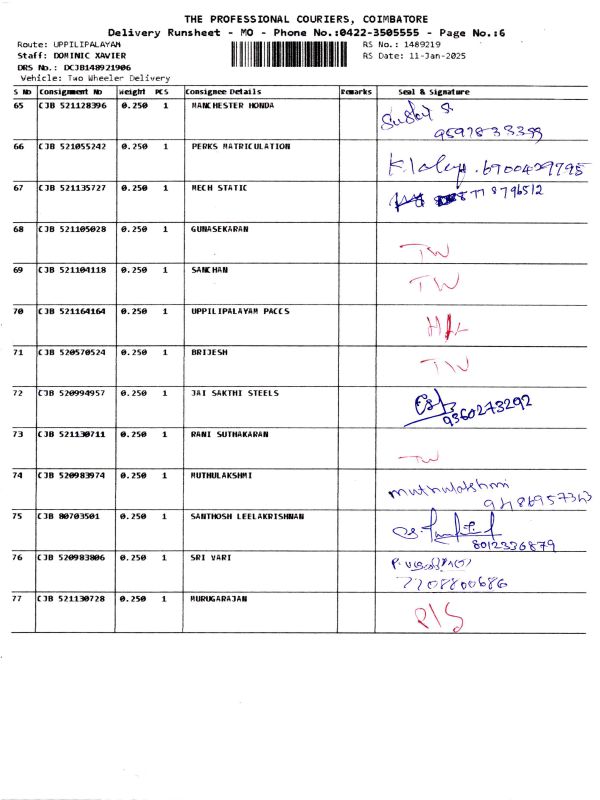 THE PROFESSIONAL COURIERS, COIMBATORE
Delivery Runsheet - MO - Phone No.:0422-3505555 - Page No.:6
Route: UPPILIPALAYAM RS No.: 1489219
Staff: DOMINIC XAVIER RS Date: 11-Jan-2025
DRS No.: DCJB148921906
Vehicle: Two Wheeler Delivery
S No Consignment No Weight PCS Consignee Details Remarks Seal & Signature
65 CJB 521128396 0.250 1 MANCHESTER HONDA
66 CJB 521055242 0.250 1 PERKS MATRICULATION
67 CJB 521135727 0.250 1 MECH STATIC
68 CJB 521105028 0.250 1 GUNASEKARAN
TW
69 CJB 521104118 0.250 1 SANCHAN
TW
70 CJB 521164164 0.250 1 UPPILIPALAYAM PACCS
71 CJB 520570524 0.250 1 BRIJESH
TW
72 CJB 520994957 0.250 1 JAI SAKTHI STEELS
9360273292
73 CJB 521130711 0.250 1 RANI SUTHAKARAN
TW
74 CJB 520983974 0.250 1 MUTHULAKSHMI
muthulakshmi
75 CJB 80703501 0.250 1 SANTHOSH LEELAKRISHNAN
8012336879
76 CJB 520983806 0.250 1 SRI VARI
7708800686
77 CJB 521130728 0.250 1 MURUGARAJAN
P/S